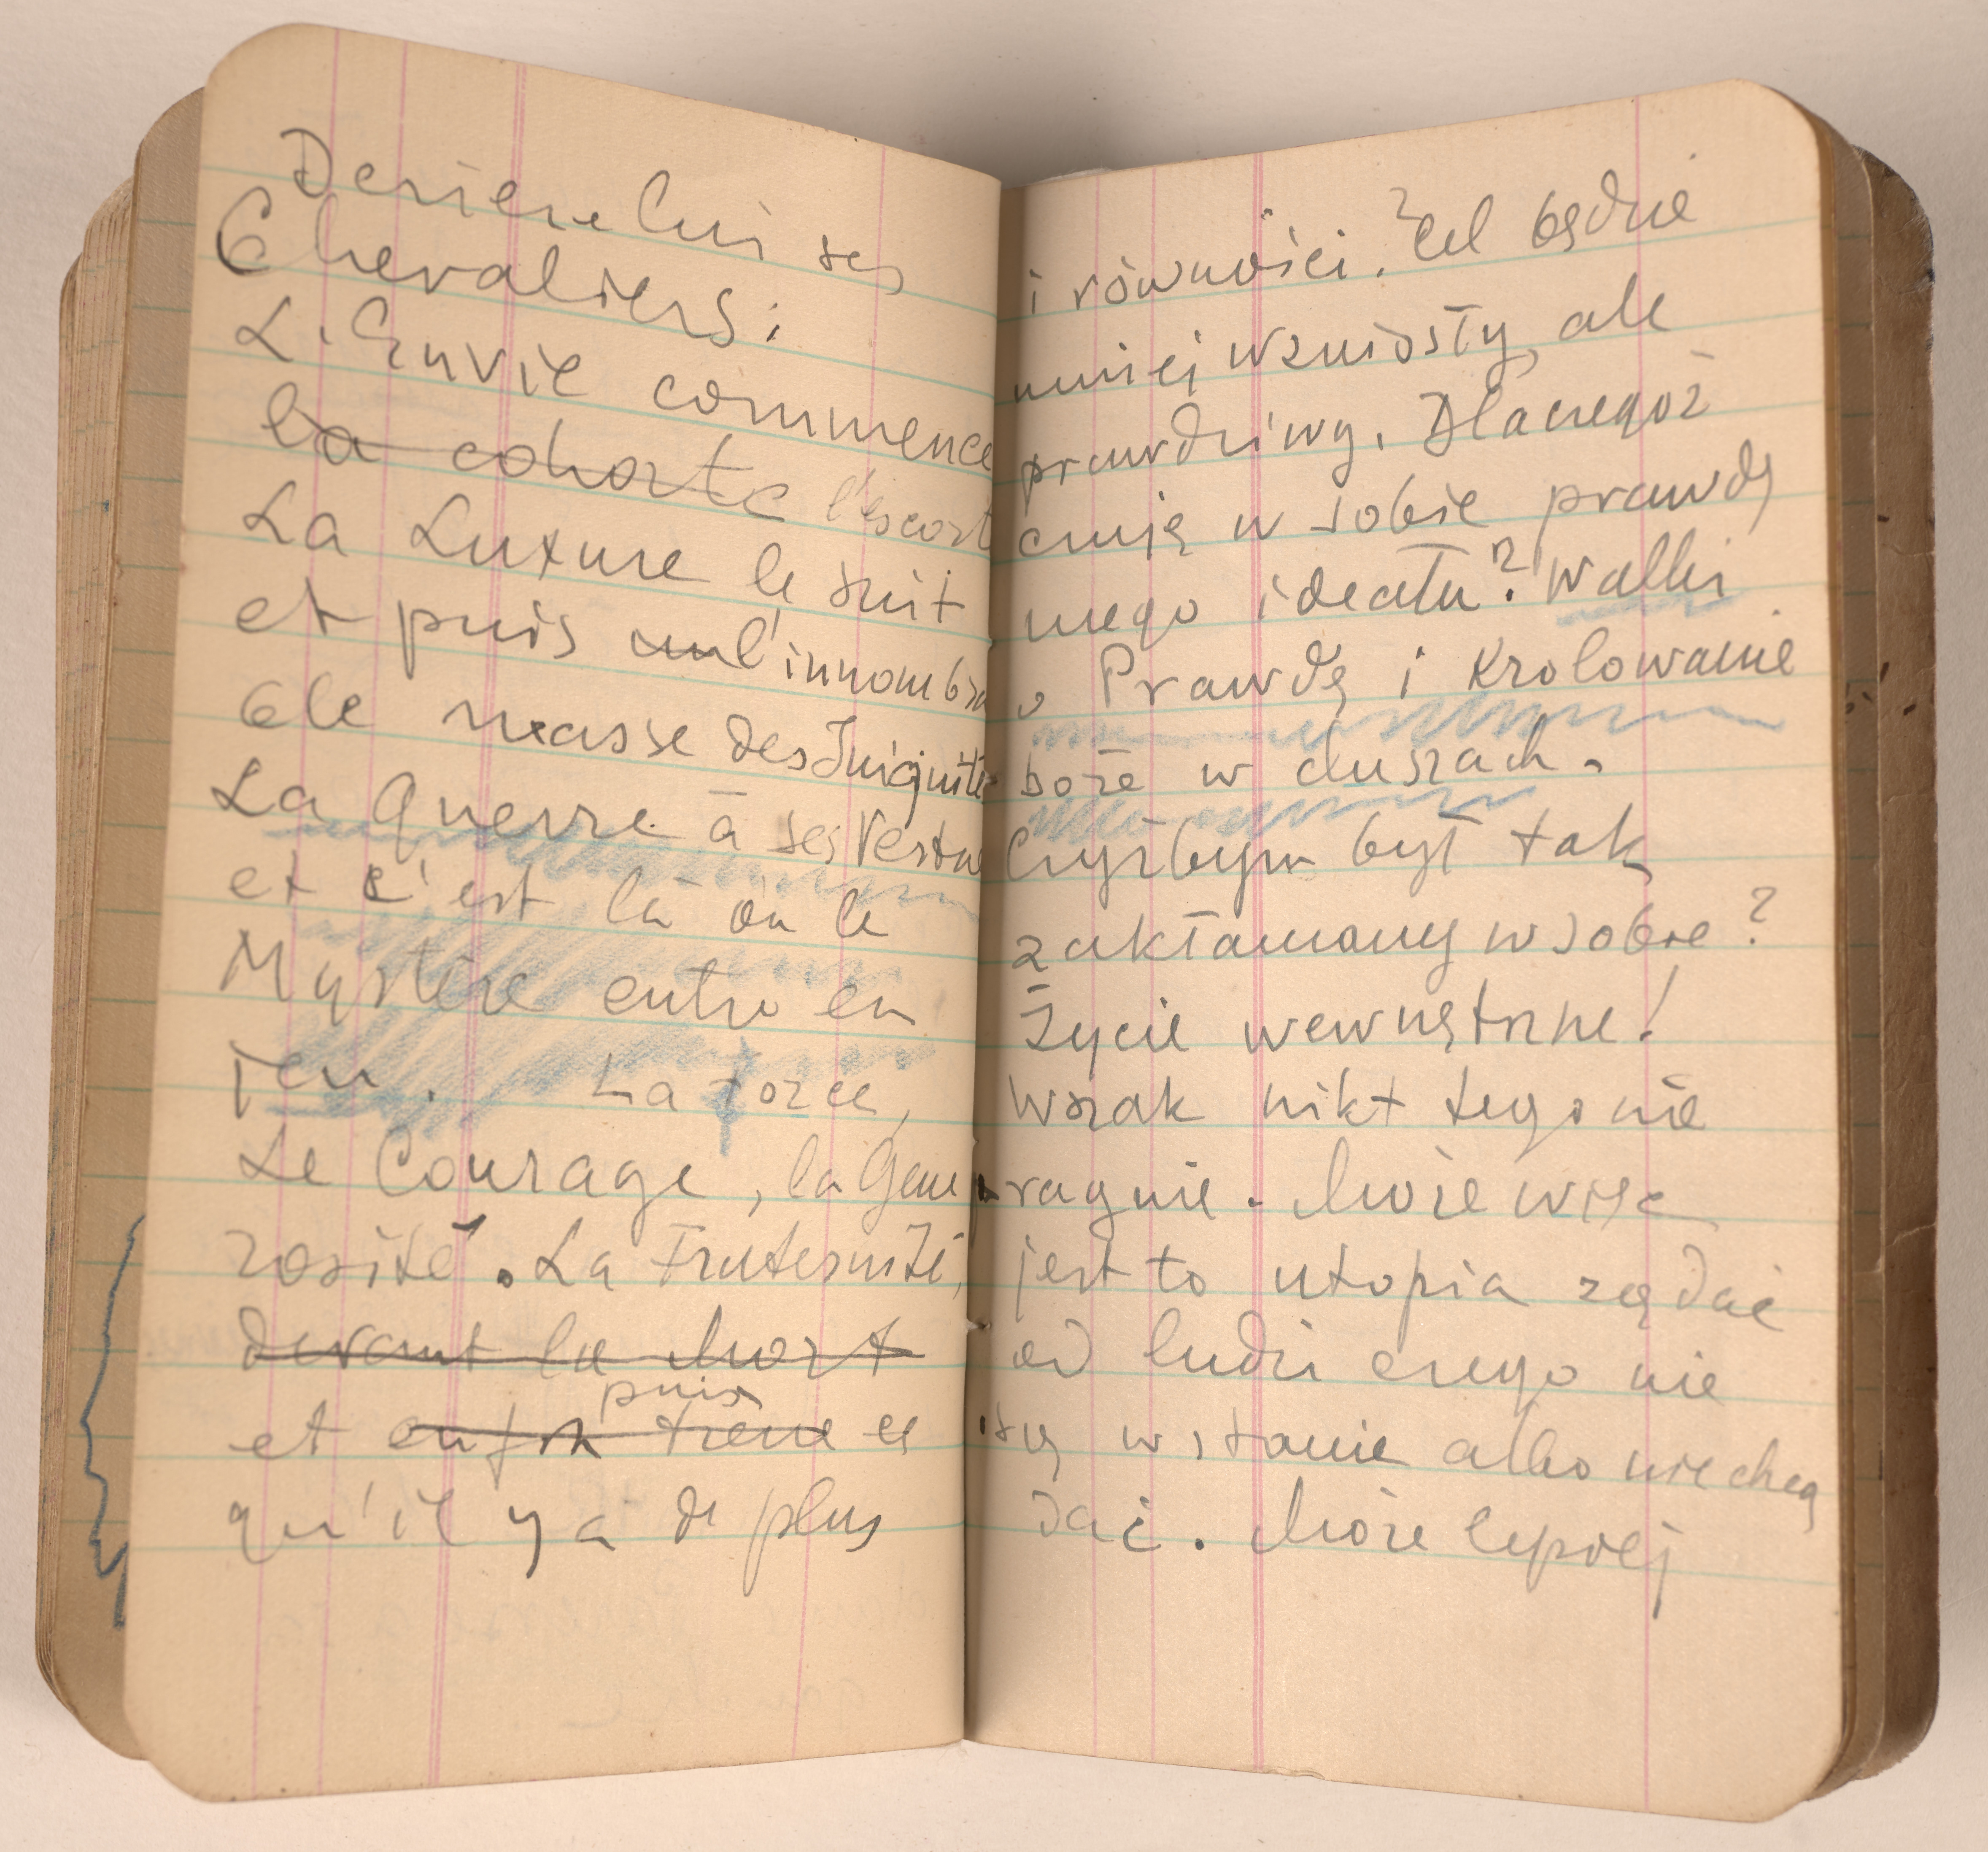 Deriere lui ses
Chevaliers:
L'Envie commence
la cohorte l'escort
La Luxure le suit
et puis un l'innombra
ble masse des Iniquité
La Guerre à ses Vertus
et c'est là où le
Mystère entre en
jeu. La force,
Le Courage, la Gene
rosité. La Fraternité,
devant la Mort
puis
et enfin trene ce
qu'il y a de plus
i równości. Cel będzie
mniej wzniosły, ale
prawdziwy. Dlaczegoż
czuję w sobie prawdę
mego ideału? Walki
o Prawdę i Krolowanie
boże w duszach.
Czyżbym był tak
zakłamany w sobie?
Życie wewnętrzne!
Wszak nikt tego nie
pragnie. Może więc
jest to utopia rządać
od ludzi czego nie
są w stanie albo nie chcą
dać. Może lepiej